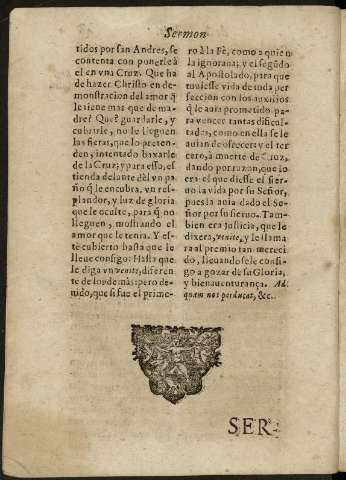 Sermon
tidos por san Andres, se
contenta con ponerle à
el en vna Cruz. Que ha
de hazer Christo en de-
monstracion del amor q̃
le tiene mas que de ma-
dre? Que? guardarle, y
cubirle, no le lleguen
las fieras, que lo preten-
den, intentado baxarle
de la Cruz; y para esso, es-
tienda delante dèl vn pa-
ño q̃ le encubra, vn res-
plandor, y luz de gloria
que le oculte, para q̃ no
lleguen, mostrando el
amor que le tenia. Y es-
tè cubierto hasta que le
lleue consigo: Hasta que
le diga vn venite, diferen-
te de los de mas: pero de-
uido, que si fue el prime-
ro à la Fè, como a quien
la ignoraua; y el segũdo
al Apostolado, para que
tuuiesse vida de toda per
feccion con los auxilios
q̃ le auia prometido pa-
ra vencer tantas dificul-
tades, como en ella se le
auian de ofrecer: y el ter
cero, a muerte de Cruz,
dando por razon, que lo
era el que diesse el sier-
uo la vida por su Señor,
pues la auia dado el Se-
ñor por su sieruo. Tam-
bien era justicia, que le
dixera, venite, y le llama
ra al premio tan mereci-
do, lleuandosele consi-
go a gozar de su Gloria,
y bienauenturança. Ad
quam nos perducat, &c.
SER-